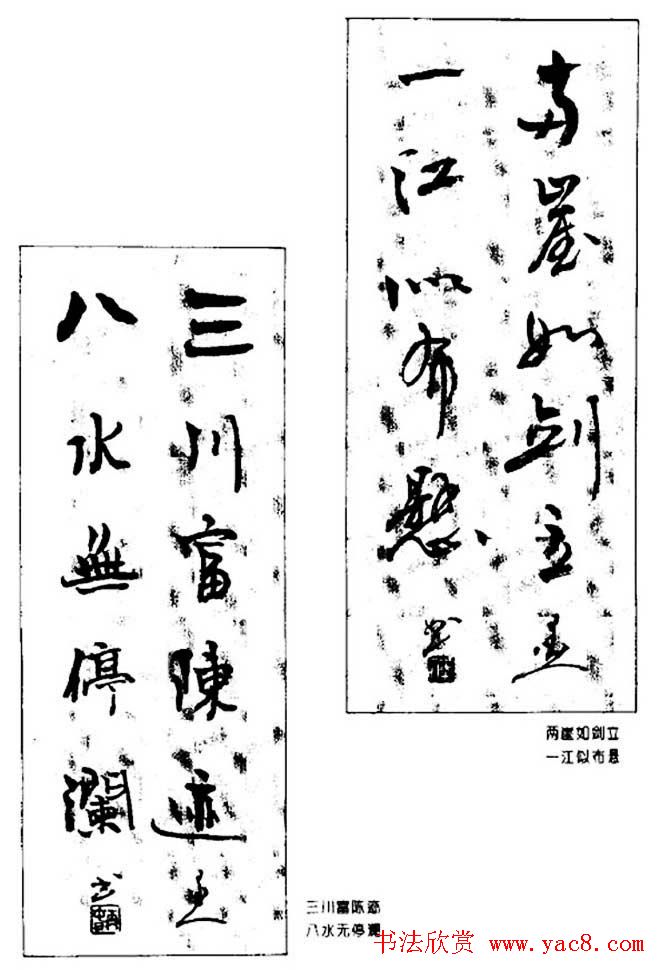 两崖如剑立
一江似布懸
两崖如剑立
一江似布悬
三川富陳迹
八水無停瀾
三川富陈迹
八水无停澜
书法欣赏 www.yac8.com